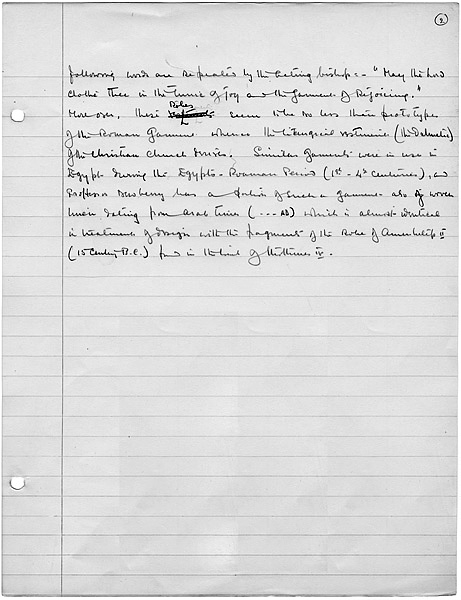 2
following words are repeated by the acting bishop:- "May the Lord
clothe Thee in the Tunic of Joy and the Garment of Rejoicing."
Robes
Moreover, these seem to be no less than prototypes
of the Roman Garment whence the liturgical vestment (the Dalmatic)
of the Christian Church derives. Similar Garments were in use in
Egypt during the Egypto-Roman Period (1st - 4th centuries), and
Professor Newberry has a portion of such a garment also of woven
linen dating from Arab times (... AD) which is almost identical
in treatment of design with the fragments of the Robe of Amenhetep II
(15 Century B.C.) found in the tomb of Thothmes IV.